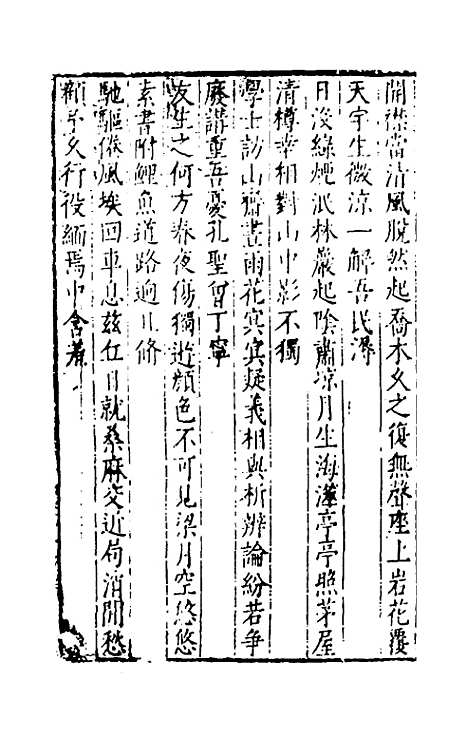 開襟當清風脫然起喬木久之復無聲座上岩花覆
天宇生微涼一解吾民溽
日沒綠煙泯林巖起陰肅涼月生海滋亭亭照茅屋
清樽幸相對山中影不獨
學士訪山齋晝雨花㝠㝠疑義相與析辨論紛若爭
廢講重吾憂礼聖曾丁寧
友生之何方春夜傷獨逝顔色不可見梁月空悠悠
素書附鯉魚道路逈且脩
馳驅倦風埃回車息茲丘日就桑麻交近局消閒愁
顧予久行役緬焉中含羞